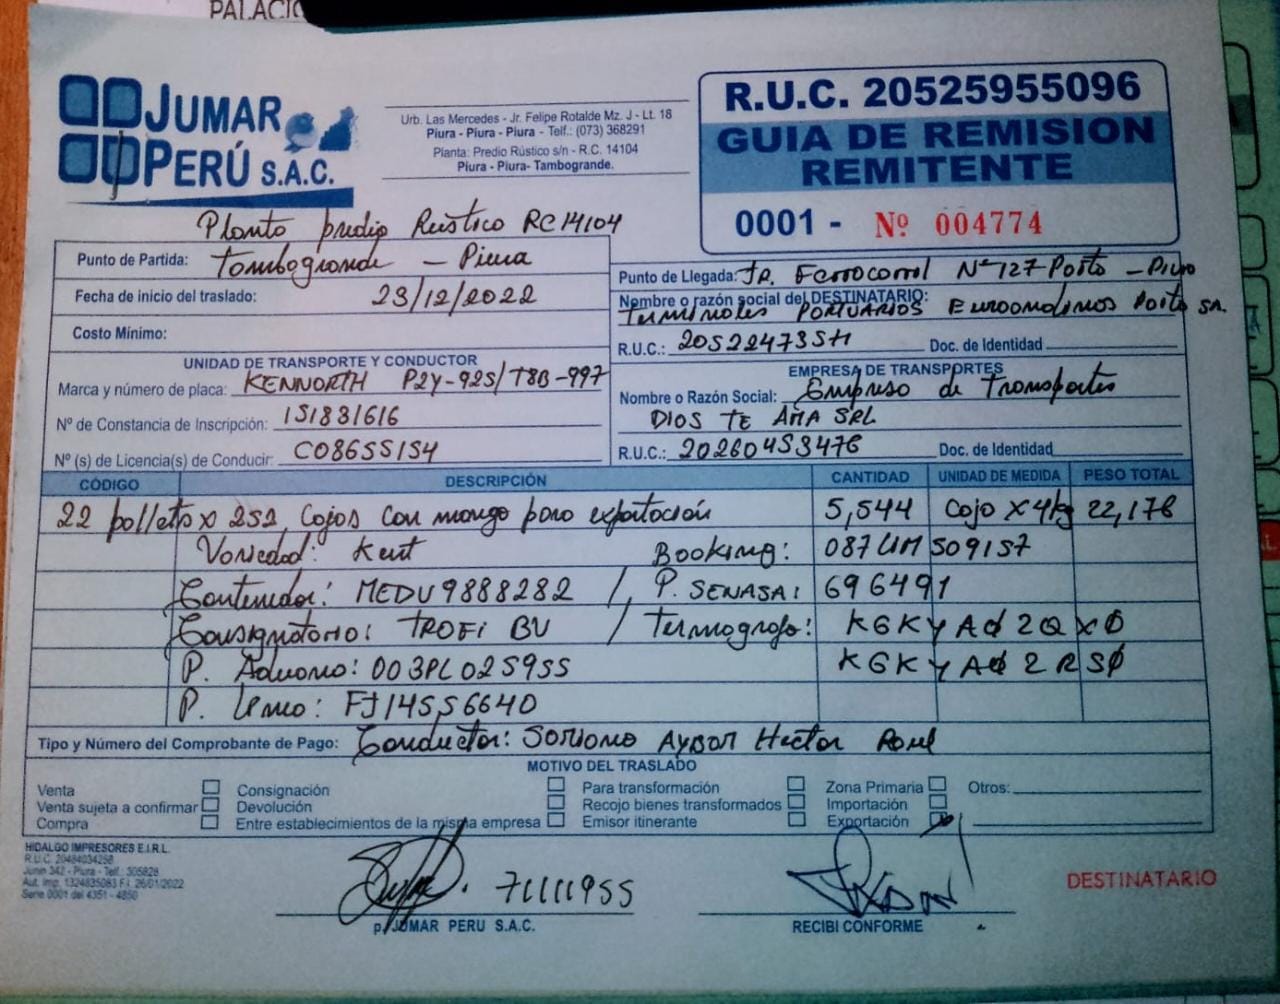 PALACIO
JUMAR
PERÚ S.A.C.
Urb. Las Mercedes - Jr. Felipe Rotalde Mz. J - Lt. 18
Piura - Piura - Piura - Telf.: (073) 368291
Planta: Predio Rústico s/n - R.C. 14104
Piura - Piura- Tambogrande.
R.U.C. 20525955096
GUIA DE REMISION
REMITENTE
0001 - Nº 004774
Planta predio Rustico RC14104
Punto de Partida: Tambogrande - Piura
Fecha de inicio del traslado: 23/12/2022
Costo Mínimo:
Punto de Llegada: JR. Ferrocarril Nº 127 Paita - Piura
Nombre o razón social del DESTINATARIO:
Terminales PORTUARIOS Euroandinos Paita SA.
R.U.C.: 20522473571 Doc. de Identidad
UNIDAD DE TRANSPORTE Y CONDUCTOR
Marca y número de placa: KENWORTH P2Y-925/T8B-997
Nº de Constancia de Inscripción: 151831616
Nº (s) de Licencia(s) de Conducir: C08655154
EMPRESA DE TRANSPORTES
Nombre o Razón Social: Empresa de Transportes
DIOS TE AMA SRL
R.U.C.: 20260453476 Doc. de Identidad
CÓDIGO DESCRIPCIÓN CANTIDAD UNIDAD DE MEDIDA PESO TOTAL
22 pallets x 252 Cajas con mango para exportación 5,544 Caja x 4kg 22,176
Variedad: Kent Booking: 087LIM509157
Contenedor: MEDU9888282 / P. SENASA: 696491
Consignatario: TROFI BV / Termografo: KGKYAØ2QXØ
P. Aduana: 003PL025955 KGKYAØ2RSØ
P. Linea: FJ14556640
Tipo y Número del Comprobante de Pago: Conductor: SORIANO AYBAR Hector
MOTIVO DEL TRASLADO
Venta Consignación Para transformación Zona Primaria Otros:
Venta sujeta a confirmar Devolución Recojo bienes transformados Importación
Compra Entre establecimientos de la misma empresa Emisor itinerante Exportación
HIDALGO IMPRESORES E.I.R.L.
R.U.C. 20484034258
Junin 342 - Piura - Telf.: 305828
Aut. Imp. 1324835083 F.I. 26/01/2022
Serie 0001 del 4351 - 4850
71111955
p. JUMAR PERU S.A.C.
RECIBI CONFORME
DESTINATARIO